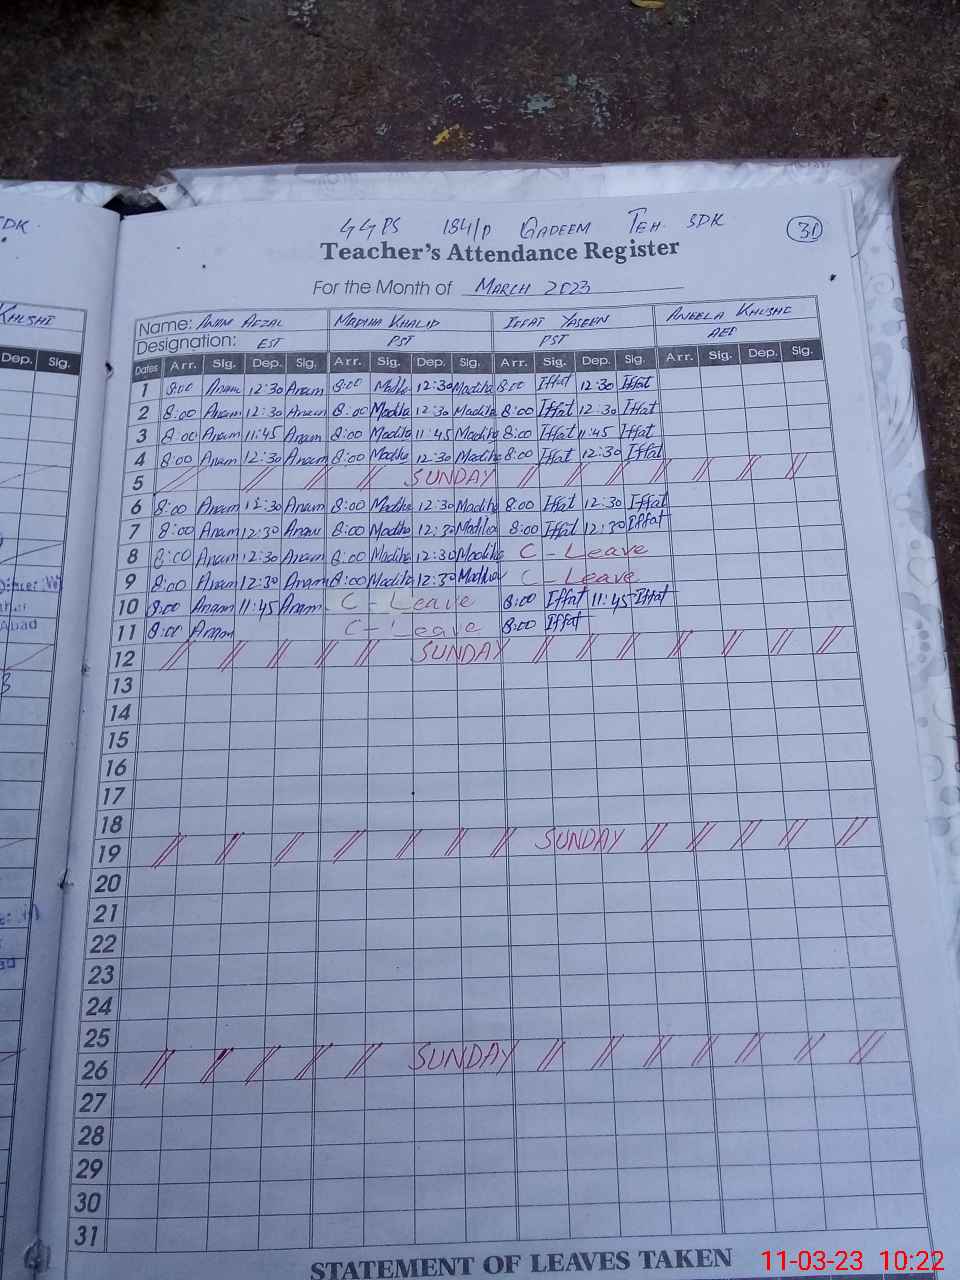 GGPS 184/P QADEEM TEH. SDK
31
Teacher's Attendance Register
For the Month of MARCH 2023
Name: ANAM AFZAL MADIHA KHALID IFFAT YASEEN ANEELA KHUSHI
Designation: EST PST PST AEO
Dates Arr. Sig. Dep. Sig. Arr. Sig. Dep. Sig. Arr. Sig. Dep. Sig. Arr. Sig. Dep. Sig.
1 8:00 Anam 12:30 Anam 8:00 Madiha 12:30 Madiha 8:00 Iffat 12:30 Iffat
2 8:00 Anam 12:30 Anam 8:00 Madiha 12:30 Madiha 8:00 Iffat 12:30 Iffat
3 8:00 Anam 11:45 Anam 8:00 Madiha 11:45 Madiha 8:00 Iffat 11:45 Iffat
4 8:00 Anam 12:30 Anam 8:00 Madiha 12:30 Madiha 8:00 Iffat 12:30 Iffat
5 // // // // SUNDAY // // // // // // //
6 8:00 Anam 12:30 Anam 8:00 Madiha 12:30 Madiha 8:00 Iffat 12:30 Iffat
7 8:00 Anam 12:30 Anam 8:00 Madiha 12:30 Madiha 8:00 Iffat 12:30 Iffat
8 8:00 Anam 12:30 Anam 8:00 Madiha 12:30 Madiha C - Leave
9 8:00 Anam 12:30 Anam 8:00 Madiha 12:30 Madiha C - Leave
10 8:00 Anam 11:45 Anam C - Leave 8:00 Iffat 11:45 Iffat
11 8:00 Anam C - Leave 8:00 Iffat
12 // // // // // SUNDAY // // // // // // //
13
14
15
16
17
18
19 // // // // // // // SUNDAY // // // // //
20
21
22
23
24
25
26 // // // // // SUNDAY // // // // // // //
27
28
29
30
31
STATEMENT OF LEAVES TAKEN
11-03-23 10:22
SDK
KHUSHI
Dep. Sig.